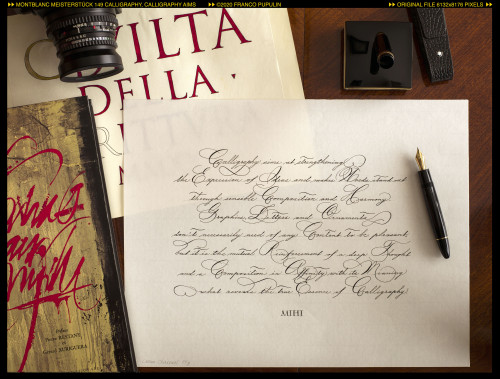 MONTBLANC MEISTERSTÜCK 149 CALLIGRAPHY, CALLIGRAPHY AIMS
©2020 FRANCO PUPULIN
ORIGINAL FILE 6132x8176 PIXELS
VILTA
DELLA
Calligraphy aims at strengthening
the Expression of Ideas and makes Words stand out
through sensible Composition and Harmony
Graphism, Letters and Ornaments
don't necessarily need of any Content to be pleasant,
but it is the mutual Reinforcement of a deep Thought
and a Composition in Affinity with its Meaning
what reveals the true Essence of Calligraphy
MIHI